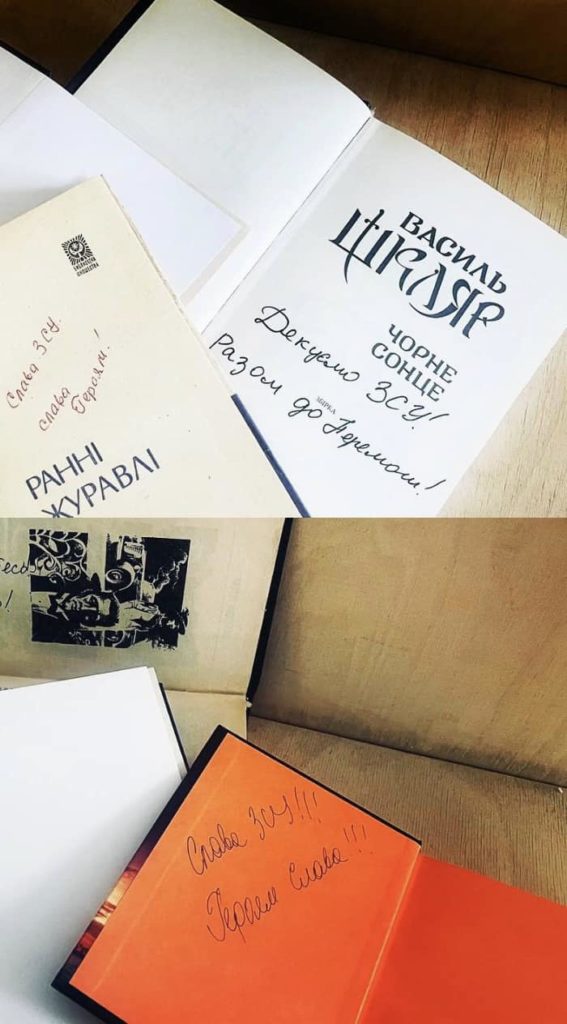 ВАСИЛЬ
ШКЛЯР
ЧОРНЕ
СОНЦЕ
Дякуємо ЗСУ!
Разом до Перемоги!
Слава ЗСУ.
слава Героям!
РАННІ
ЖУРАВЛІ
Слава ЗСУ!!!
Героям Слава!!!